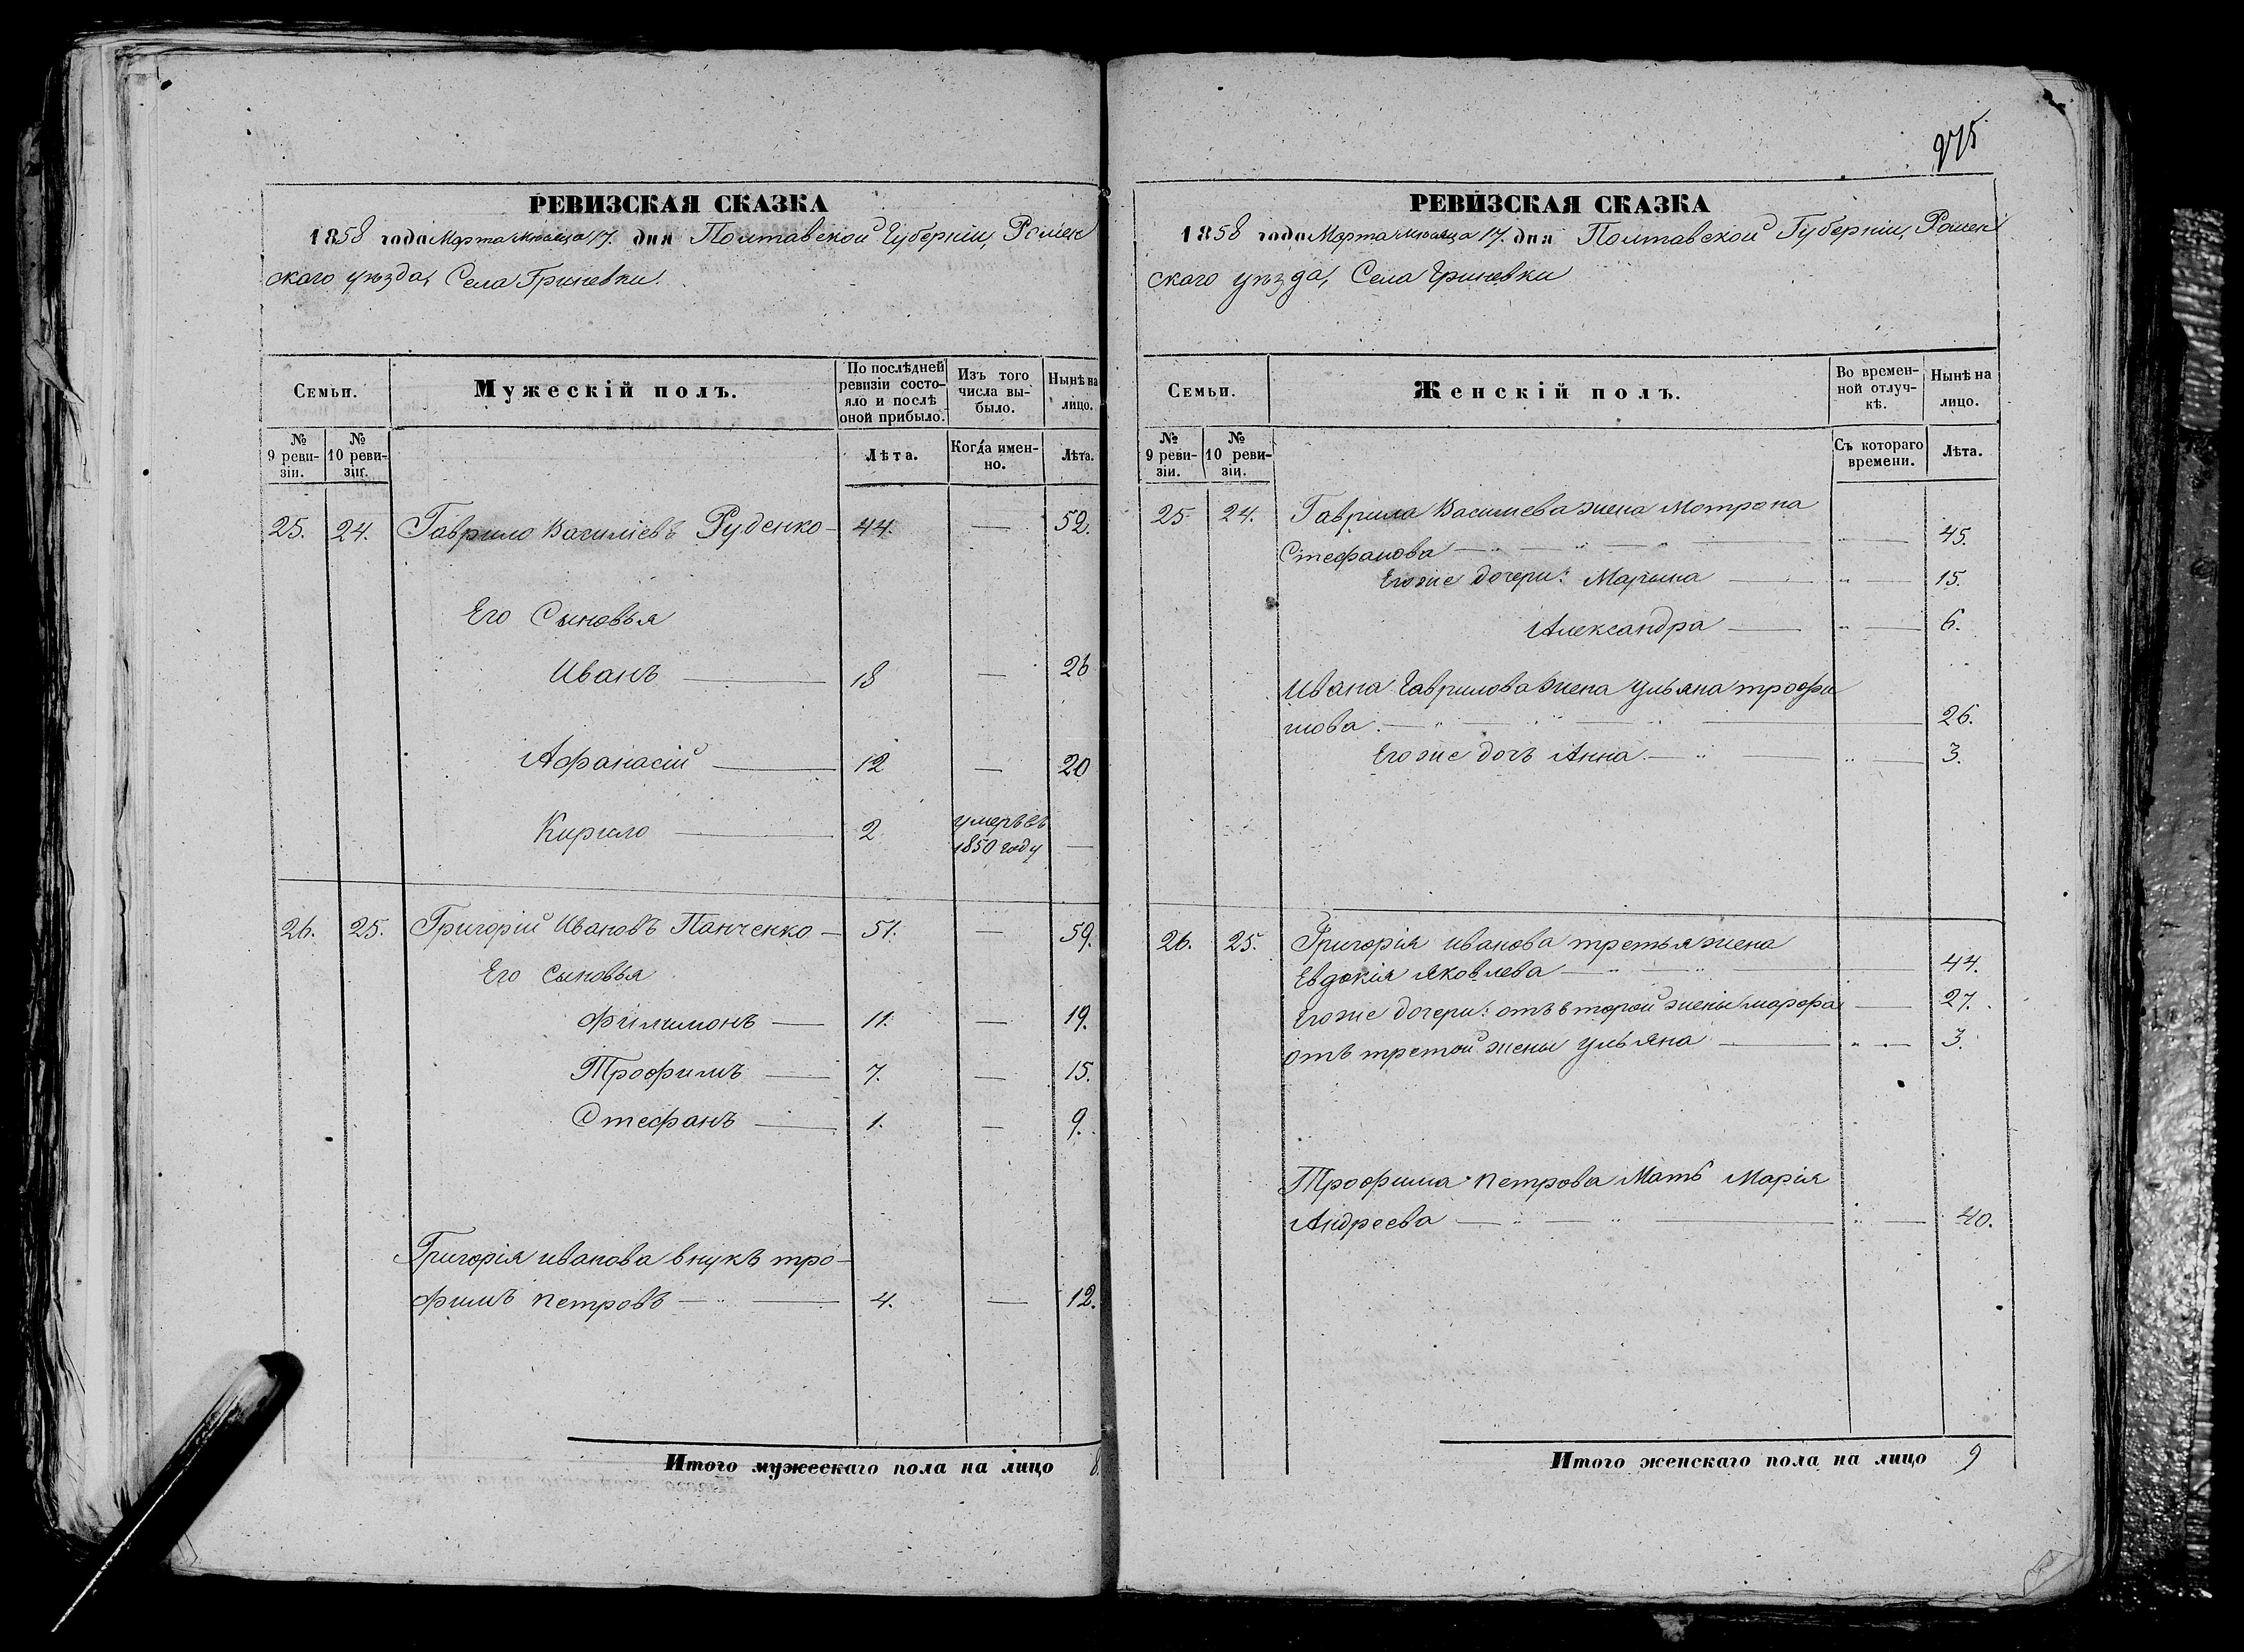 РЕВИЗСКАЯ СКАЗКА
1858 года Марта месяца 17. дня Полтавской Губерніи, Ромен
скаго уѣзда, Села Гриневки.
Семьи.
Мужескій полъ.
По послѣдней ревизіи состояло и послѣ оной прибыло.
Изъ того числа выбыло.
Нынѣ на лицо.
№ 9 ревизіи.
№ 10 ревизіи.
Лѣта.
Когда именно.
Лѣта.
25. 24. Гаврило Василіевъ Руденко — 44. — 52.
Его Сыновья
Иванъ — 18 — 26
Афанасій — 12 — 20
Кирило — 2 умеръ въ
1850 году —
26. 25. Григорій Ивановъ Панченко — 51. — 59.
Его Сыновья
Филимонъ — 11. — 19.
Трофимъ — 7. — 15.
Стефанъ — 1. — 9.
Григорія иванова внукъ тро-
фимъ петровъ — 4. — 12.
Итого мужескаго пола на лицо 8.
275
РЕВИЗСКАЯ СКАЗКА
1858 года Марта месяца 17. дня Полтавской Губерніи, Ромен
скаго уѣзда, Села Гриневки
Семьи.
Женскій полъ.
Во временной отлучкѣ.
Нынѣ на лицо.
№ 9 ревизіи.
№ 10 ревизіи.
Съ котораго времени.
Лѣта.
25 24. Гаврила Василиева жена Мотрона
Стефанова — " — " — " — 45.
Его же дочери: Марина — " — 15.
Александра — " — 6.
Ивана Гаврилова жена ульяна трофи
мова. — " — " — " — 26.
Его же дочь Анна. — " — " — 3.
26. 25. Григорія иванова третья жена
Евдокія Яковлева — " — " — 44.
Его же дочери: отъ второй жены марфа — 27.
отъ третой жены ульяна — " — 3.
Трофима петрова Мать Марія
Андреева — " — " — " — 40.
Итого женскаго пола на лицо 9